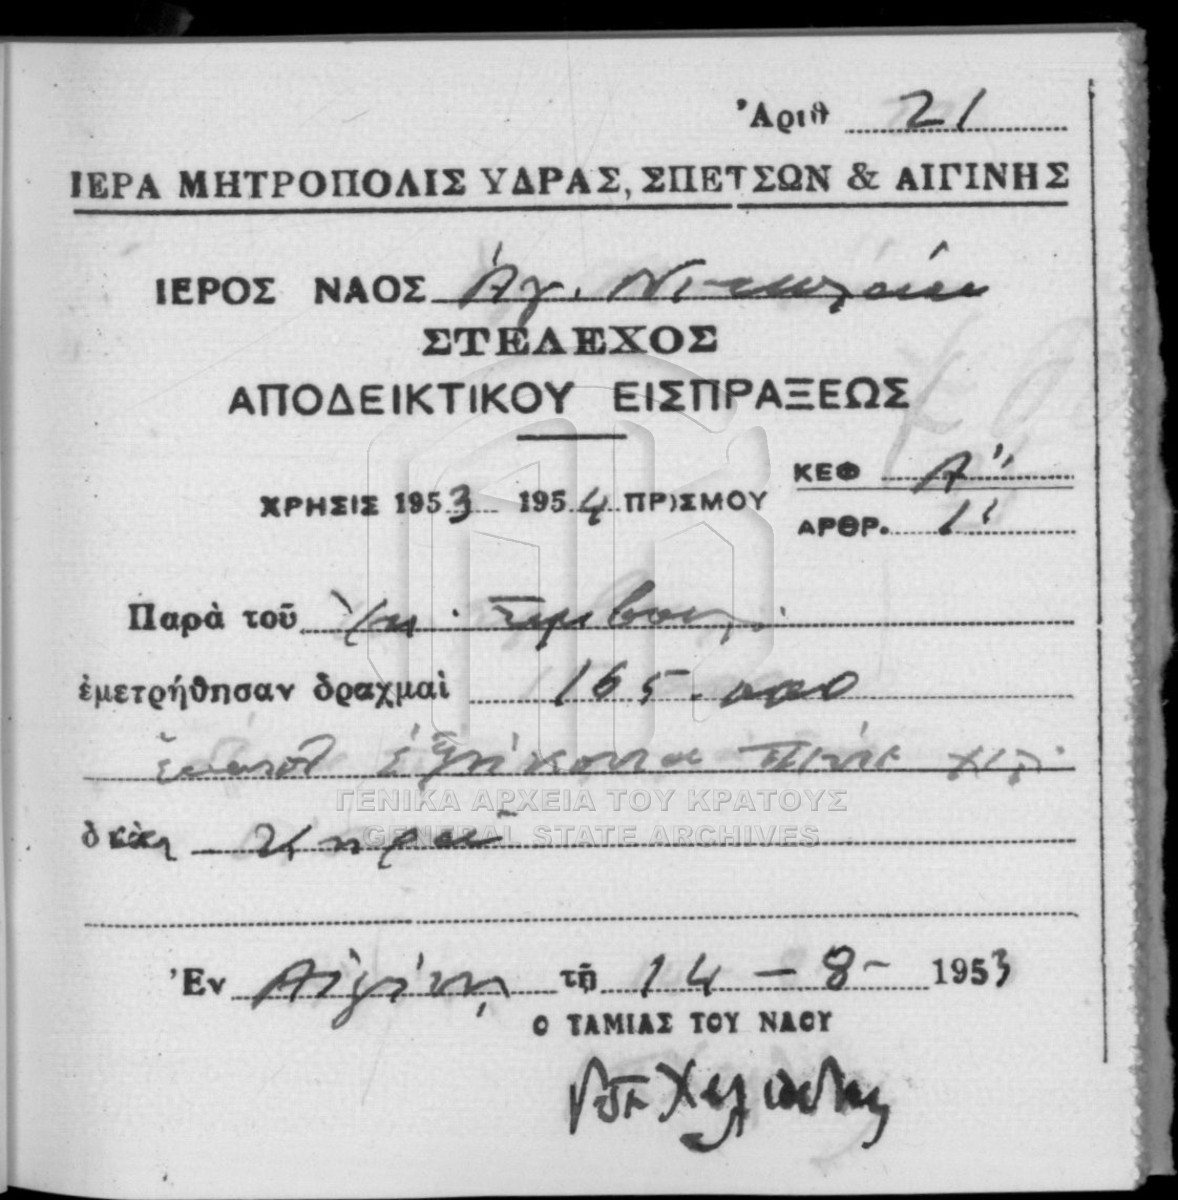 Ἀριθ 21
ΙΕΡΑ ΜΗΤΡΟΠΟΛΙΣ ΥΔΡΑΣ, ΣΠΕΤΣΩΝ & ΑΙΓΙΝΗΣ
ΙΕΡΟΣ ΝΑΟΣ Ἁγ. Νικολάου
ΣΤΕΛΕΧΟΣ
ΑΠΟΔΕΙΚΤΙΚΟΥ ΕΙΣΠΡΑΞΕΩΣ
ΚΕΦ Α"
ΧΡΗΣΙΣ 1953 1954 ΠΡ)ΣΜΟΥ
ΑΡΘΡ. 1'
Παρὰ τοῦ
ἐμετρήθησαν δραχμαὶ 165.000
ἑκατὸν ἑξήκοντα πέντε χιλ.
διὰ κηρὸ
Ἐν Αἰγίνῃ τῇ 14 - 8 - 1953
Ο ΤΑΜΙΑΣ ΤΟΥ ΝΑΟΥ
ΓΕΝΙΚΑ ΑΡΧΕΙΑ ΤΟΥ ΚΡΑΤΟΥΣ
GENERAL STATE ARCHIVES